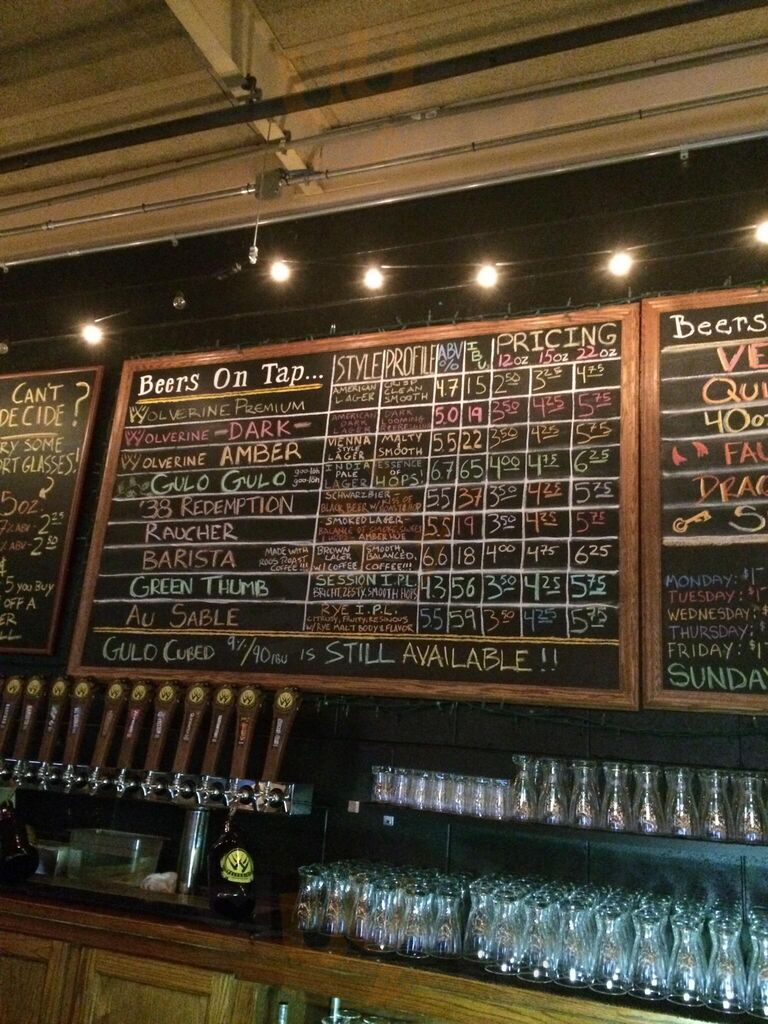 CAN'T
DECIDE?
TRY SOME
SHORT GLASSES!
5oz?
2.25
2.50
5 YOU BUY
OFF A
Beers On Tap... STYLE PROFILE ABV% IBU PRICING
12oz 15oz 22oz
WOLVERINE PREMIUM AMERICAN LAGER CRISP CLEAN SMOOTH 4.7 15 2.50 3.25 4.75
WOLVERINE -DARK- AMERICAN DARK LAGER DARK LOOMING REFRESHING 5.0 19 3.50 4.25 5.75
WOLVERINE AMBER VIENNA STYLE LAGER MALTY SMOOTH 5.5 22 3.50 4.25 5.75
GULO GULO goo-loh goo-loh INDIA PALE LAGER ESSENCE OF HOPS! 6.7 65 4.00 4.75 6.25
'38 REDEMPTION SCHWARZBIER BLACK BEER W/ KISS OF ROAST & HOP 5.5 37 3.50 4.25 5.75
RAUCHER SMOKED LAGER BALANCE OF SMOKE, SWEET & HOPS AMBER HUE 5.5 19 3.50 4.25 5.75
BARISTA MADE WITH ROOS ROAST COFFEE!!! BROWN LAGER W/ COFFEE SMOOTH, BALANCED, COFFEE!!! 6.6 18 4.00 4.75 6.25
GREEN THUMB SESSION I.P.L. BRIGHT, ZESTY, SMOOTH HOPS 4.3 56 3.50 4.25 5.75
AU SABLE RYE I.P.L. CITRUSY, FRUITY, RESINOUS W/ RYE MALT BODY & FLAVOR 5.5 59 3.50 4.25 5.75
GULO CUBED 9%/90 IBU IS STILL AVAILABLE!!
Beers
VE
QUI
40oz
FAL
DRAG
S
MONDAY: $1
TUESDAY: $1
WEDNESDAY: $
THURSDAY: $
FRIDAY: $1
SUNDAY